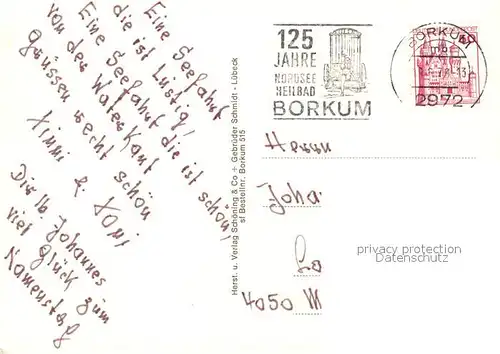 Eine Seefahrt
die ist lustig!
Eine Seefahrt die ist schön,
von der Waterkant
grüssen recht schön
Ximmi & Xoni
Dir lb. Johannes
viel Glück zum
Namenstag
Horst. u. Verlag Schöning & Co + Gebrüder Schmidt - Lübeck
sf Bestellnr. Borkum 515
125
JAHRE
NORDSEE
HEILBAD
BORKUM
BORKUM
2972
Herrn
Joha
4050 M
privacy protection
Datenschutz